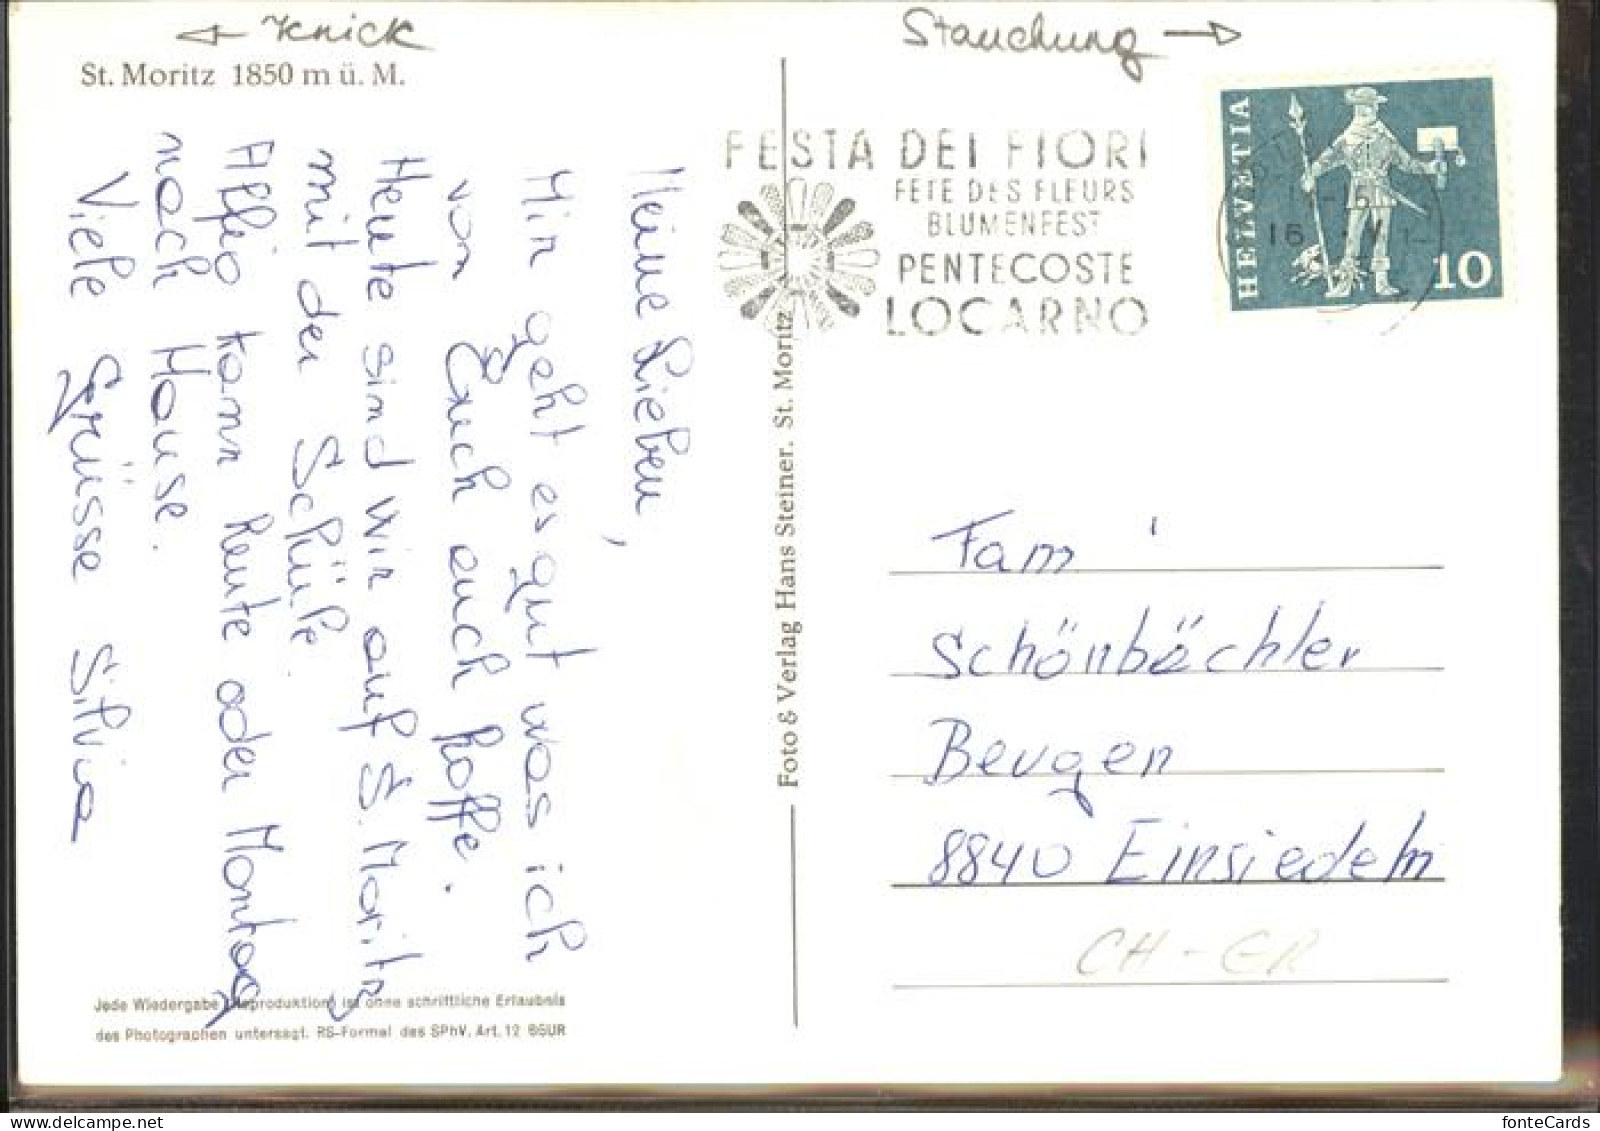 Knick
Stauchung
St. Moritz 1850 m ü. M.
Meine Lieben,
Mir geht es gut was ich
von Euch auch hoffe.
Heute sind wir auf S. Moritz
mit der Schüle.
Alfio kann heute oder Montag
nach Hause.
Viele Grüsse Silvia
Jede Wiedergabe (Reproduktion) ist ohne schriftliche Erlaubnis
des Photographen untersagt. RS-Formel des SPhV. Art. 12 65UR
Foto & Verlag Hans Steiner. St. Moritz
FESTA DEI FIORI
FETE DES FLEURS
BLUMENFEST
PENTECOSTE
LOCARNO
16
HELVETIA
10
Fam
Schönbächler
Beugen
8840 Einsiedeln
CH-GR
fonteCards